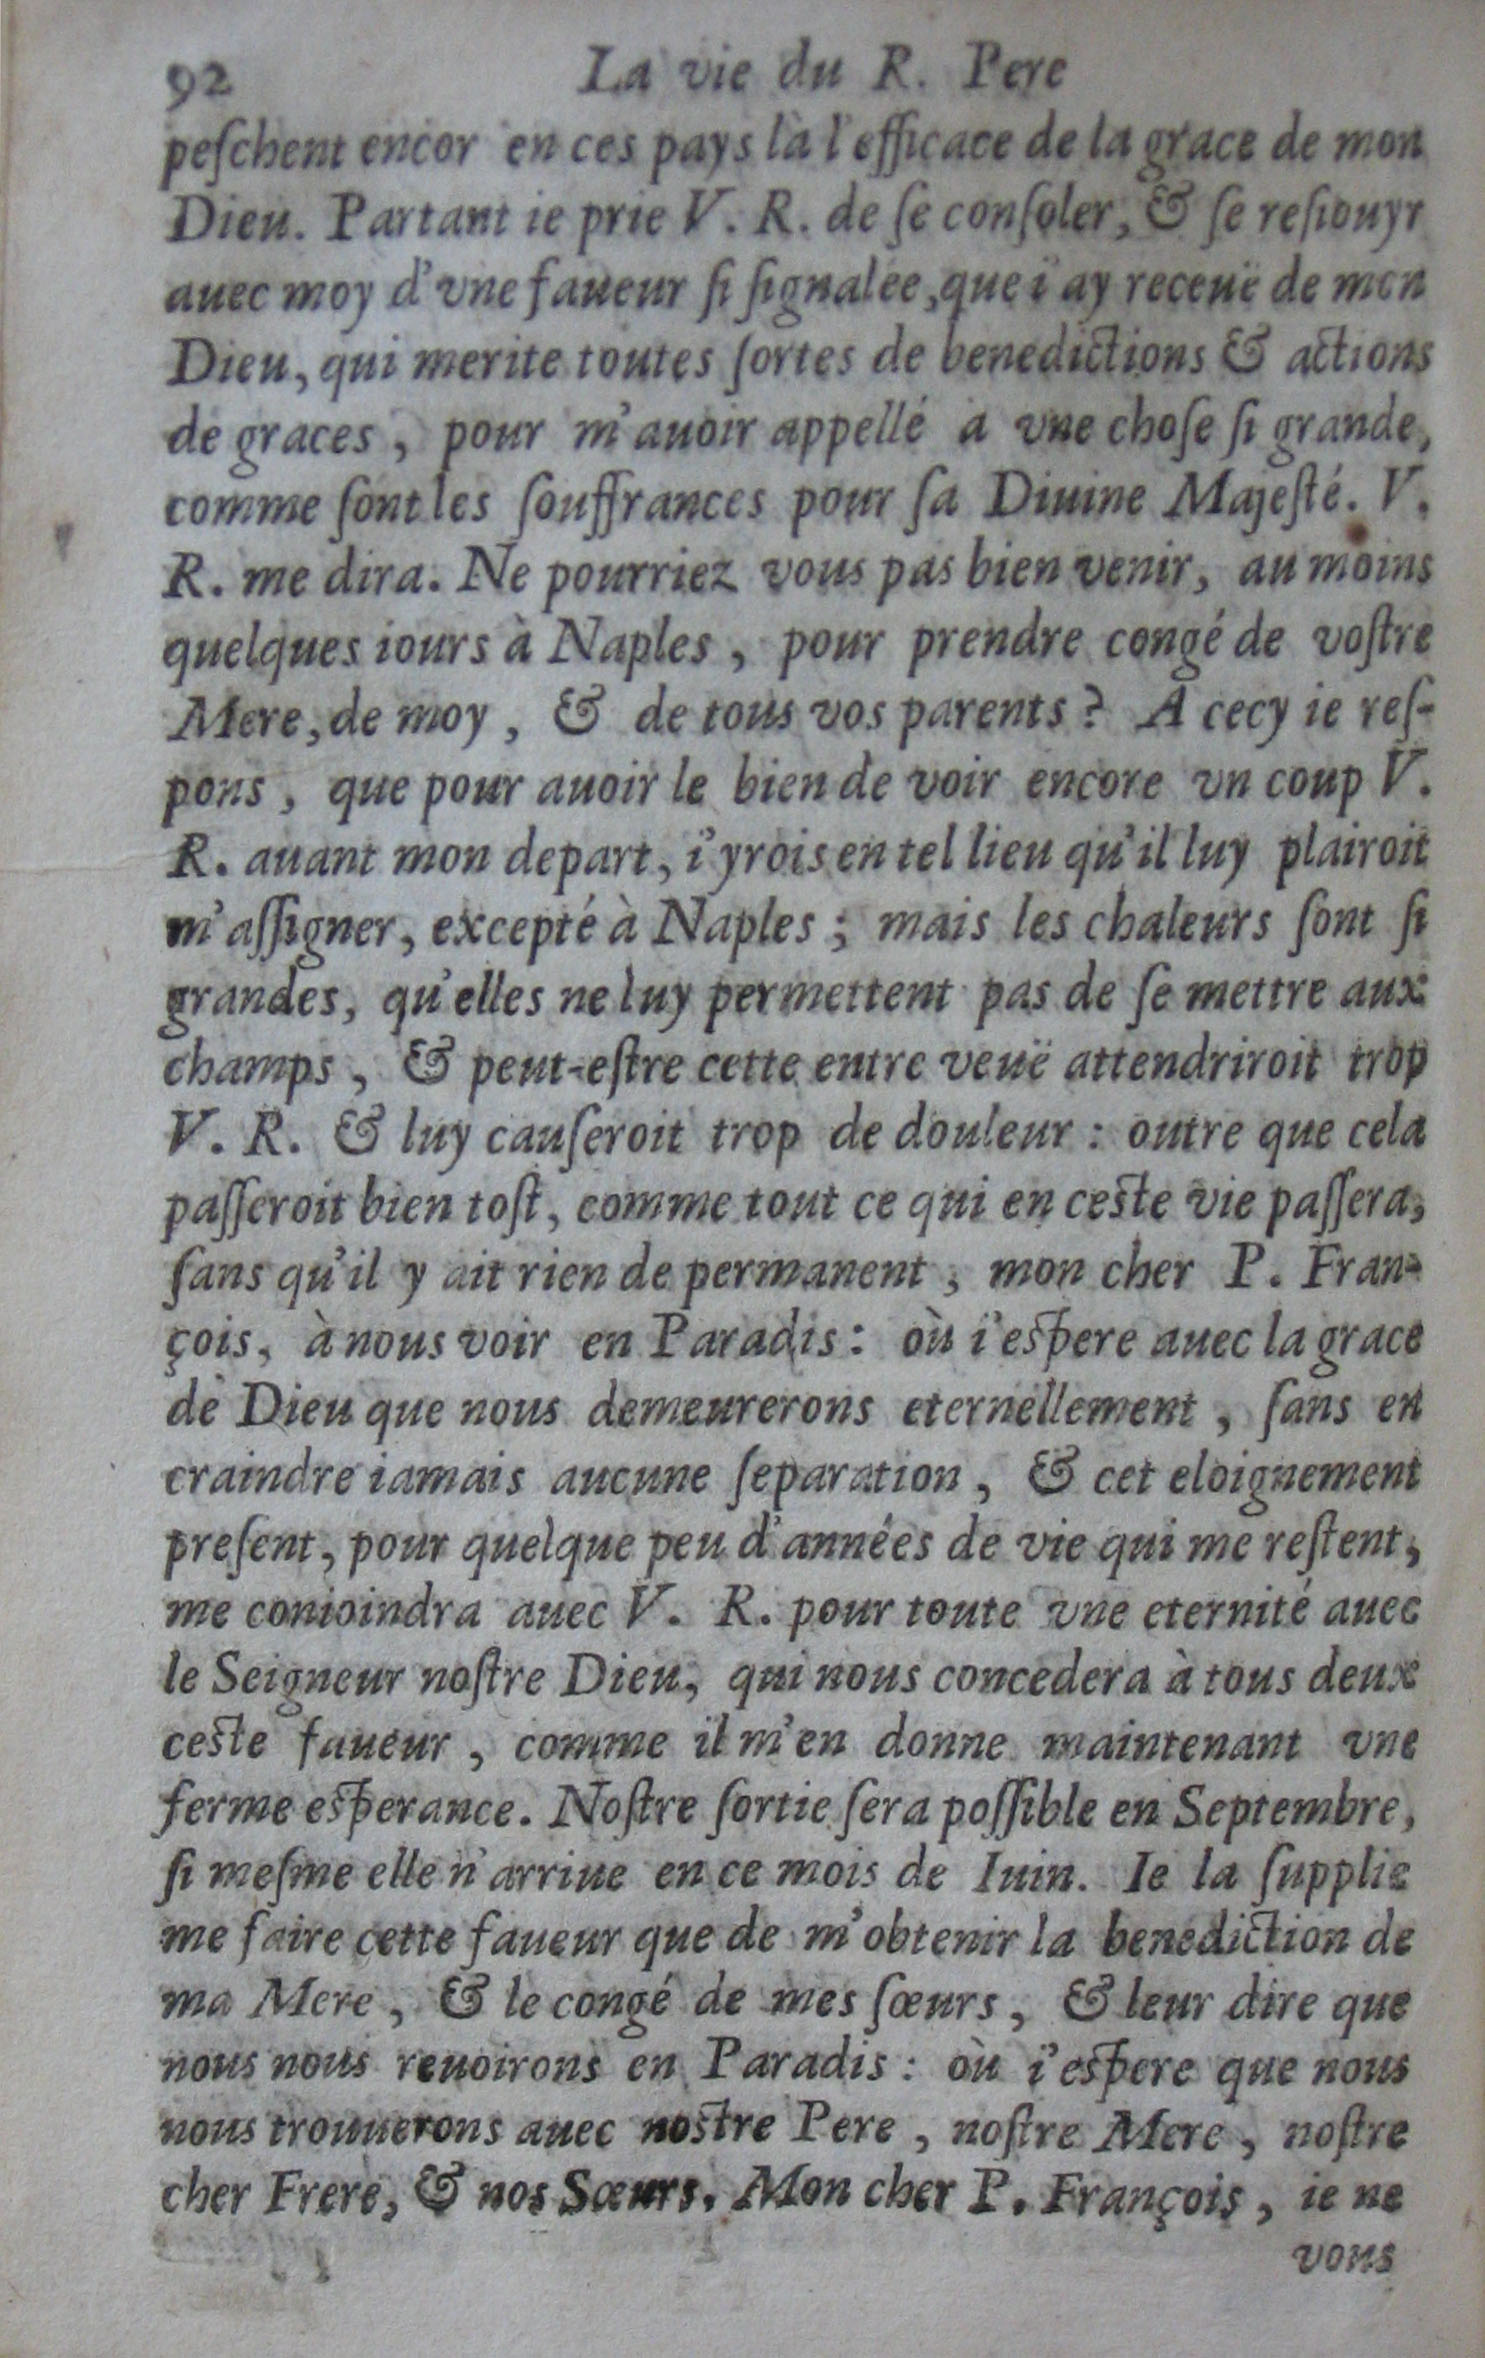 92 La vie du R. Pere
peſchent encor en ces pays là l'efficace de la grace de mon
Dieu. Partant ie prie V. R. de ſe conſoler, & ſe reſiouyr
auec moy d'vne faueur ſi ſignalee, que i'ay receuë de mon
Dieu, qui merite toutes ſortes de benedictions & actions
de graces, pour m'auoir appellé a vne choſe ſi grande,
comme ſont les ſouffrances pour ſa Diuine Majeſté. V.
R. me dira. Ne pourriez vous pas bien venir, au moins
quelques iours à Naples, pour prendre congé de voſtre
Mere, de moy, & de tous vos parents? A cecy ie reſ-
pons, que pour auoir le bien de voir encore vn coup V.
R. auant mon depart, i'yrois en tel lieu qu'il luy plairoit
m'aſſigner, excepté à Naples; mais les chaleurs ſont ſi
grandes, qu'elles ne luy permettent pas de ſe mettre aux
champs, & peut-eſtre cette entre veuë attendriroit trop
V. R. & luy cauſeroit trop de douleur: outre que cela
paſſeroit bien toſt, comme tout ce qui en ceſte vie paſſera,
ſans qu'il y ait rien de permanent, mon cher P. Fran-
çois, à nous voir en Paradis: où i'eſpere auec la grace
de Dieu que nous demeurerons eternellement, ſans en
craindre iamais aucune ſeparation, & cet eloignement
preſent, pour quelque peu d'années de vie qui me reſtent,
me conioindra auec V. R. pour toute vne eternité auec
le Seigneur noſtre Dieu, qui nous concedera à tous deux
ceſte faueur, comme il m'en donne maintenant vne
ferme eſperance. Noſtre ſortie ſera poſſible en Septembre,
ſi meſme elle n'arriue en ce mois de Iuin. Ie la ſupplie
me faire cette faueur que de m'obtenir la benediction de
ma Mere, & le congé de mes ſœurs, & leur dire que
nous nous reuoirons en Paradis: où i'eſpere que nous
nous trouuerons auec noſtre Pere, noſtre Mere, noſtre
cher Frere, & nos Sœurs. Mon cher P. François, ie ne
vous